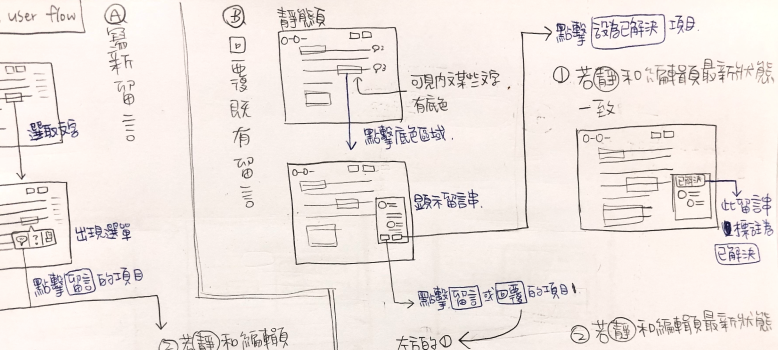 user flow
Ⓐ 寫新留言
選取文字
出現選單
點擊 留言 的項目
② 若靜和編輯頁
Ⓑ 回覆既有留言
靜態頁
可見內文某些文字,
有底色
點擊底色區域.
顯示留言串.
點擊 留言 或 回覆 的項目
左方的①
點擊 設為已解決 項目.
① 若靜和編輯頁最新狀態
一致
已解決
此留言串
標註為
已解決
② 若靜和編輯頁最新狀態